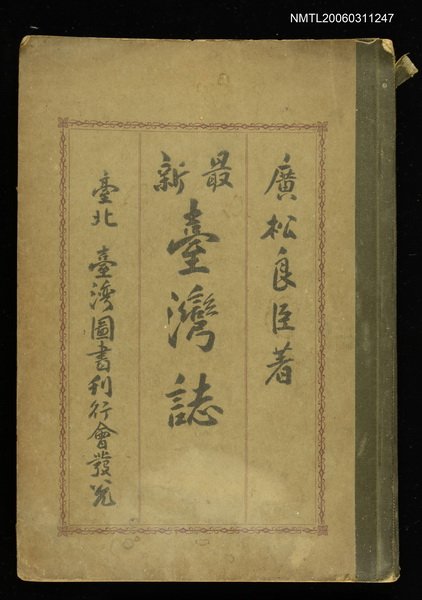 NMTL20060311247
廣松良臣著
最新
臺灣誌
臺北 臺灣圖書刊行會發兌